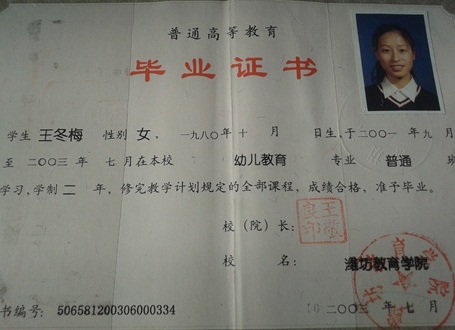 普通高等教育
毕业证书
学生 王冬梅 性别 女, 一九八〇年 十 月 日生,于二〇〇一年 九 月
至 二〇〇三年 七 月在本校 幼儿教育 专业 普通 班
学习,学制 二 年,修完教学计划规定的全部课程,成绩合格,准予毕业。
校(院)长:
校 名: 潍坊教育学院
书编号: 506581200306000334
二〇〇三年 七 月